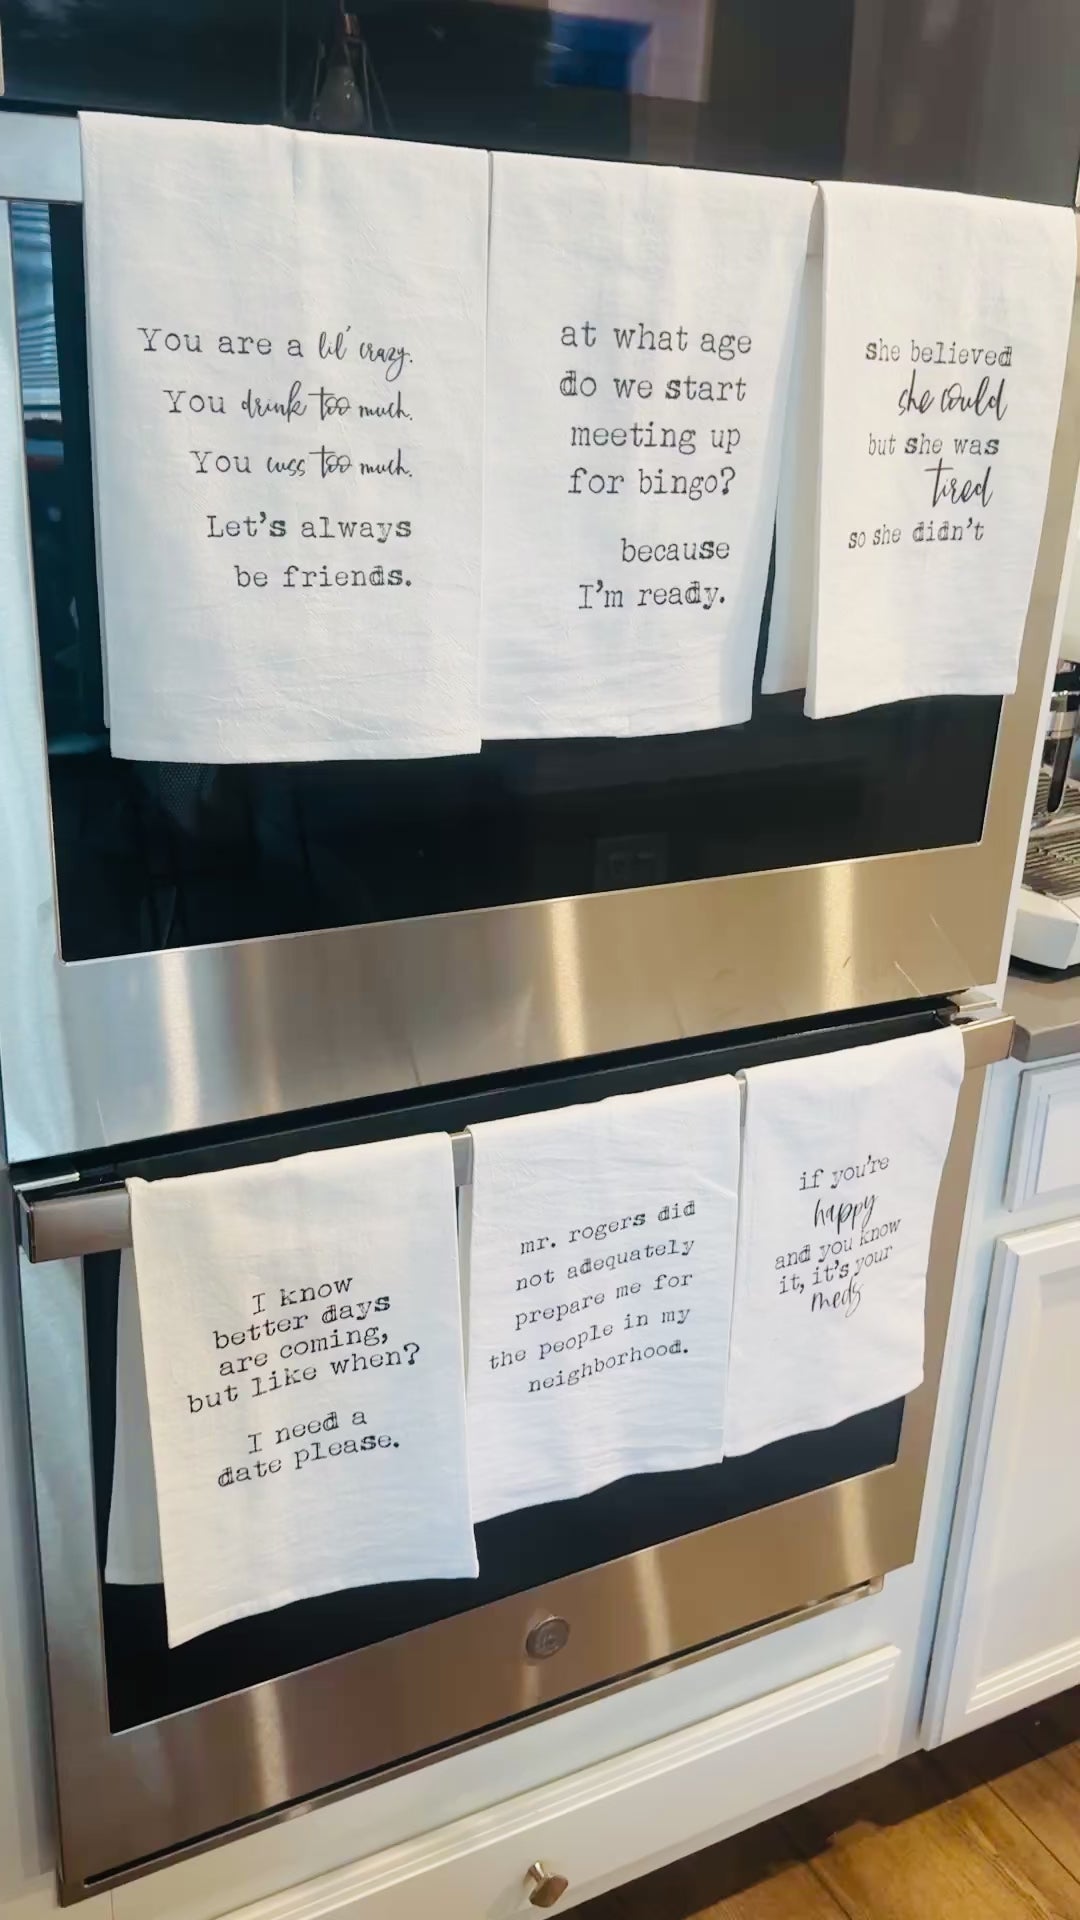 You are a lil' crazy.
You drink too much.
You cuss too much.
Let's always
be friends.
at what age
do we start
meeting up
for bingo?
because
I'm ready.
she believed
she could
but she was
tired
so she didn't
I know
better days
are coming,
but like when?
I need a
date please.
mr. rogers did
not adequately
prepare me for
the people in my
neighborhood.
if you're
happy
and you know
it, it's your
meds